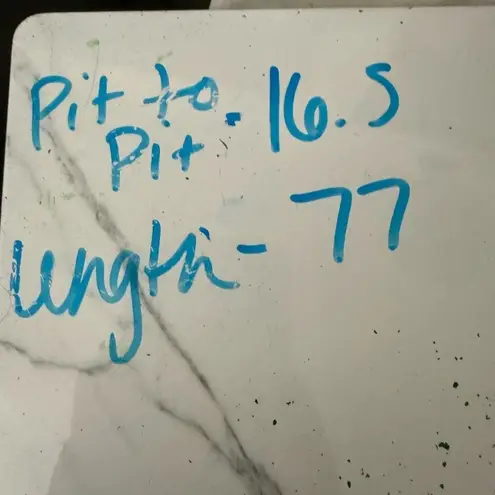 Pit to - 16.5
Pit
length - 77